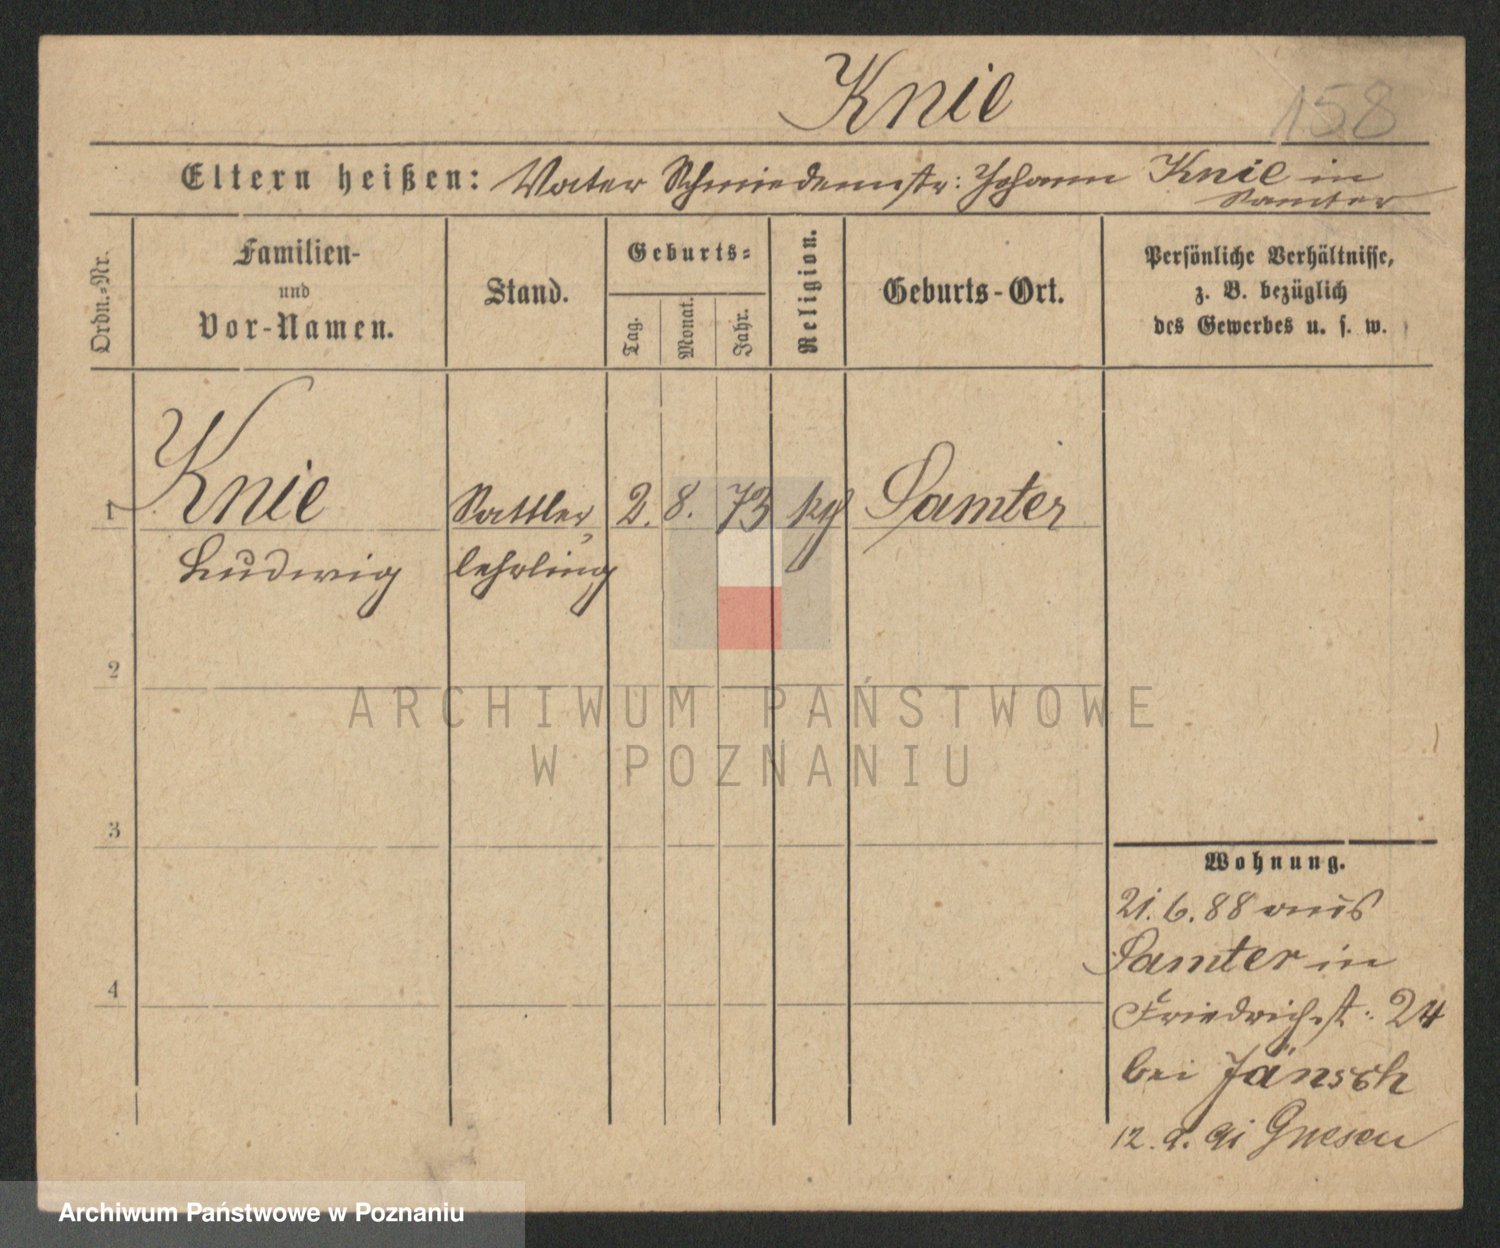 Knie
158
Eltern heißen: Vater Schmiedemstr: Johann Knie in
Samter
Ordn.=Nr.
Familien-
und
Vor-Namen.
Stand.
Geburts=
Tag.
Monat.
Jahr.
Religion.
Geburts-Ort.
Persönliche Verhältnisse,
z. B. bezüglich
des Gewerbes u. s. w.
1 Knie Sattler 2. 8. 73 Samter
Ludwig lehrling
2
3
4
Wohnung.
21. 6. 88 aus
Samter in
Friedrichst: 24
bei Jänsch
12. 9. 91 Gnesen
ARCHIWUM PAŃSTWOWE
W POZNANIU
Archiwum Państwowe w Poznaniu